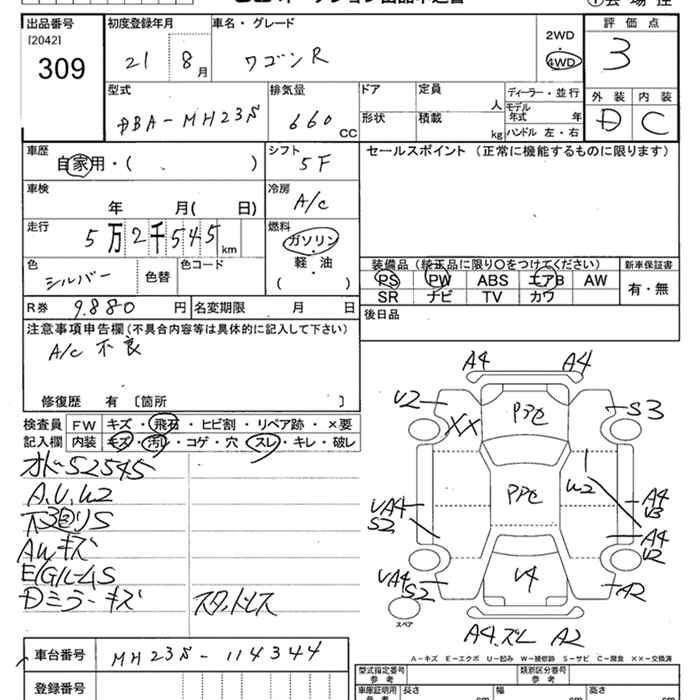 出品番号 初度登録年月 車名・グレード 2WD 評価点
[20421] ・
309 21 8月 ワゴンR 4WD 3
型式 排気量 ドア 定員 ディーラー・並行 外装 内装
DBA-MH23S 660cc 人 モデル年式 年 D C
形状 積載 kg ハンドル 左・右
車歴 シフト セールスポイント (正常に機能するものに限ります)
自家用・( ) 5F
車検 冷房
年 月( 日) A/C
走行 燃料
5万2千545km ガソリン
軽・油
( )
色 色替 色コード 装備品(純正品に限り○をつけてください) 新車保証書
シルバー PS PW ABS エアB AW 有・無
SR ナビ TV カワ
R券 9.880円 名変期限 月 日 後日品
注意事項申告欄(不具合内容等は具体的に記入して下さい)
A/C 不良
修復歴 有 〔箇所 〕
検査員 FW キズ・飛石・ヒビ割・リペア跡・×要
記入欄 内装 キズ・汚れ・コゲ・穴・スレ・キレ・破レ
S2545
A.U.W2
下回りS
AWキズ
E/GルームS
Dミラーキズ スタッドレス
A4 A4
U2 XX PPC S3
PPC W2
UA4 S2 A4 U3
A4 U2
UA4 S2 V4 A2
スペア
A4.ズレ A2
A-キズ E-エクボ U-凹み W-補修跡 S-サビ C-腐食 ××-交換済
車台番号 MH23S-114344
登録番号
型式指定番号 参考 類別区分番号
車庫証明用 参考 長さ cm 幅 cm 高さ cm